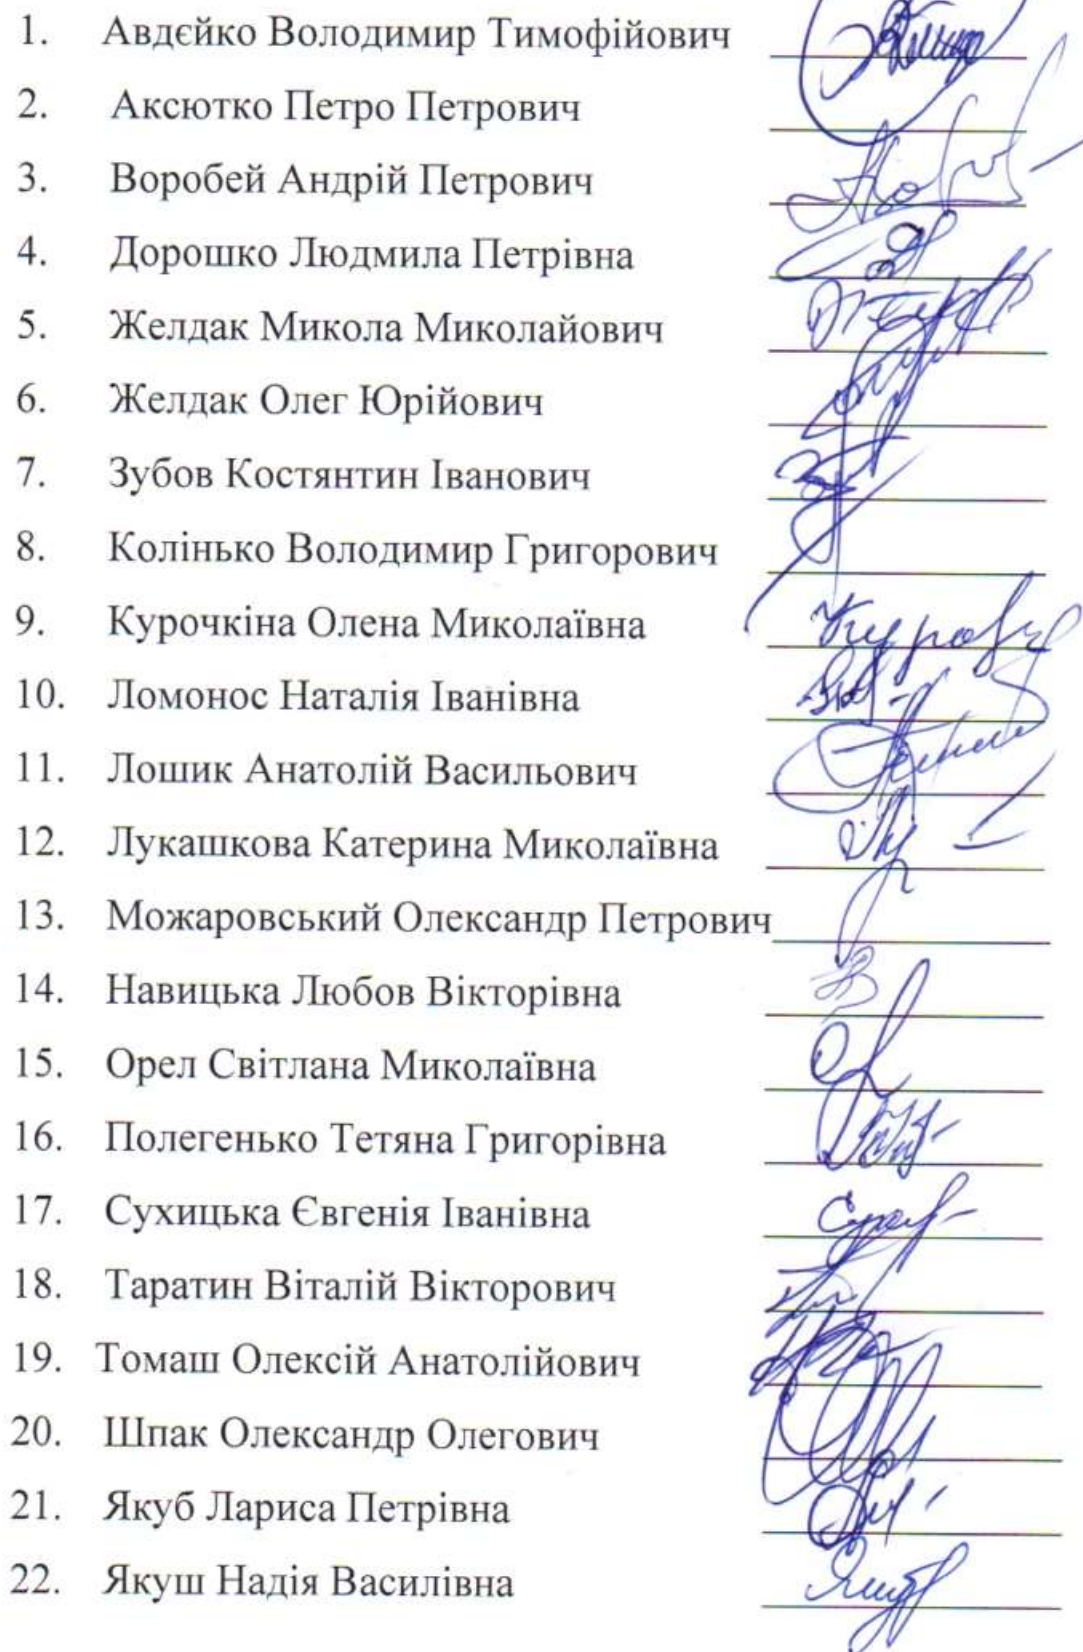 1. Авдєйко Володимир Тимофійович
2. Аксютко Петро Петрович
3. Воробей Андрій Петрович
4. Дорошко Людмила Петрівна
5. Желдак Микола Миколайович
6. Желдак Олег Юрійович
7. Зубов Костянтин Іванович
8. Колінько Володимир Григорович
9. Курочкіна Олена Миколаївна
10. Ломонос Наталія Іванівна
11. Лошик Анатолій Васильович
12. Лукашкова Катерина Миколаївна
13. Можаровський Олександр Петрович
14. Навицька Любов Вікторівна
15. Орел Світлана Миколаївна
16. Полегенько Тетяна Григорівна
17. Сухицька Євгенія Іванівна
18. Таратин Віталій Вікторович
19. Томаш Олексій Анатолійович
20. Шпак Олександр Олегович
21. Якуб Лариса Петрівна
22. Якуш Надія Василівна